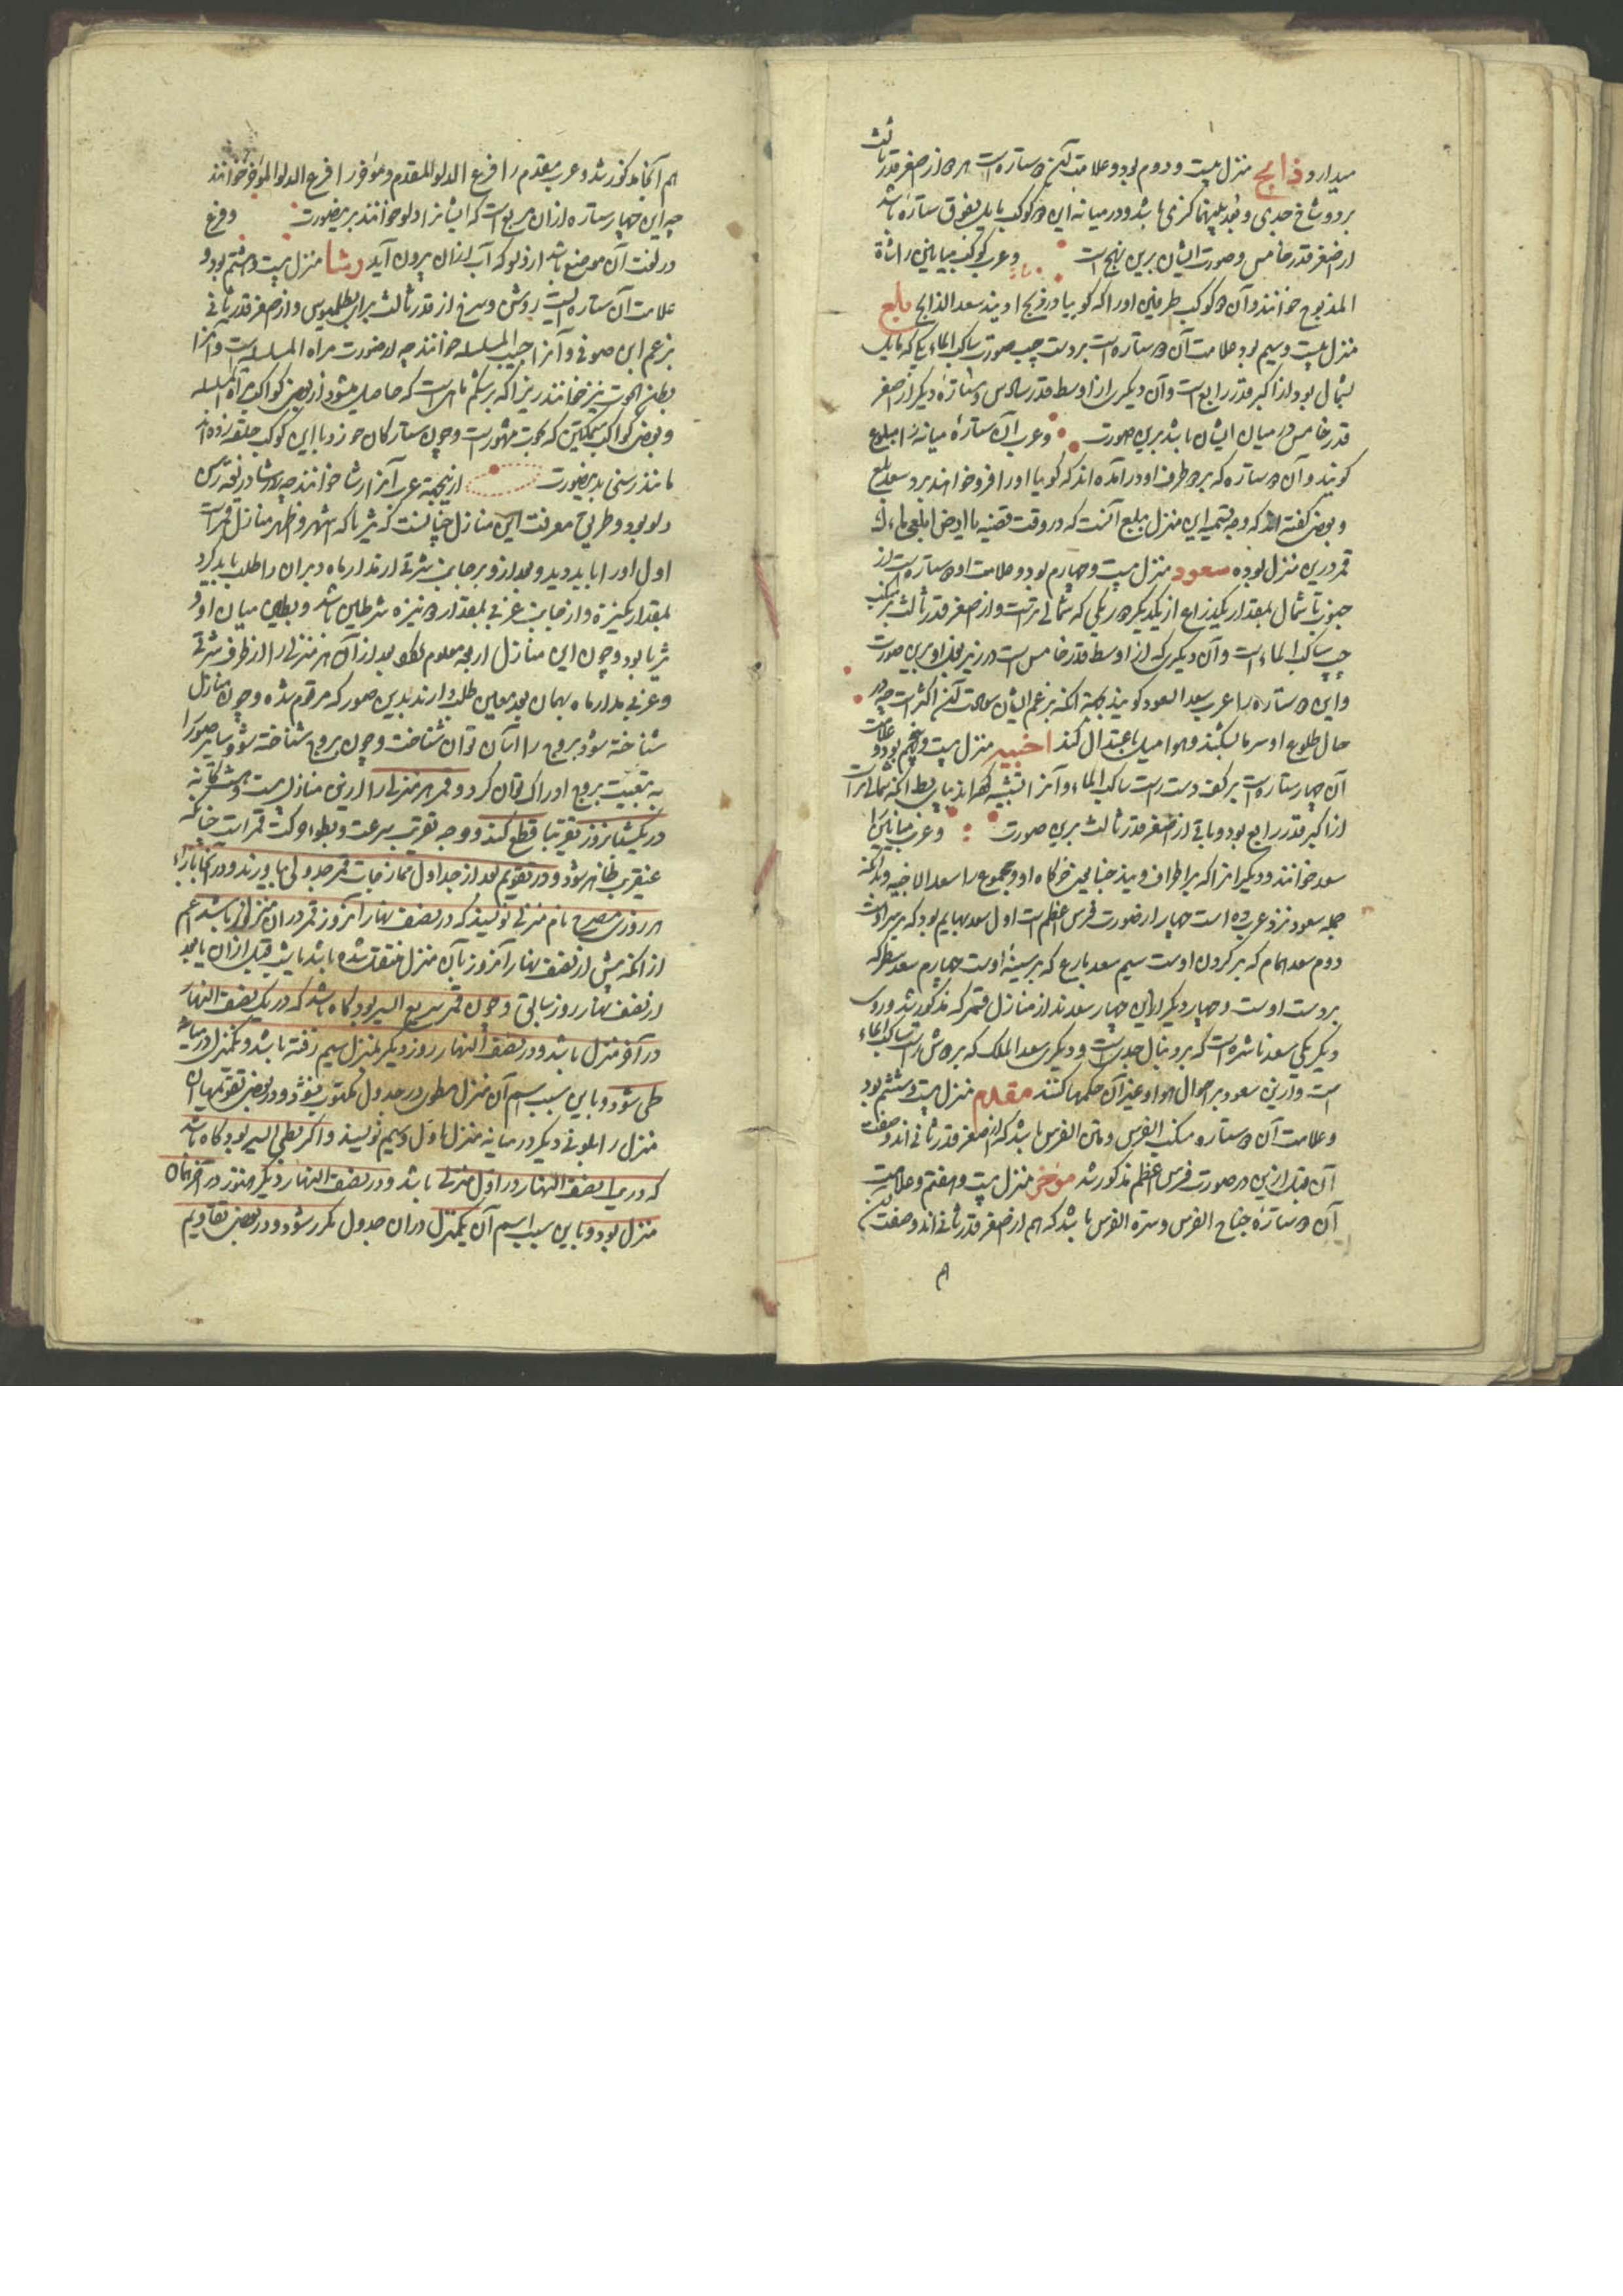 میدارد ذابح منزل بیست و دوم بود و علامت آن دو ستاره است هر دو از اصغر قدر ثالث
بر دو شاخ جدی و بعد بینهما گزی باشد و در میانه این دو کوکب بایل بفوق ستاره باشد
از اصغر قدر خامس و صورت ایشان برین نهج است و عرب کوکب میانین را شاة
المذبوح خوانند و آن دو کوکب طرفین او را که گویا در ذبح اویند سعد الذابح بلع
منزل بیست و سیم بود علامت آن دو ستاره است بر دست چپ صورت ساکب الماء یکی که مایل
بشمال بود از اکبر قدر رابع است و آن دیگری از اوسط قدر سادس و ستاره دیگر از اصغر
قدر خامس در میان ایشان باشد برین صورت و عرب آن ستاره میانه را مبلوع
گویند و آن دو ستاره که بر دو طرف او در آمده‌اند که گویا او را فرو خواهند برد سعد بلع
و بعضی گفته‌اند که وجه تسمیه این منزل ببلع آنست که در وقت قضیه یا ارض ابلعی ماءک
قمر درین منزل بوده سعود منزل بیست و چهارم بود و علامت او دو ستاره است از
جنوب تا شمال بمقدار یکذراع از یکدیگر دور یکی که شمالی تر است و از اصغر قدر ثالث بر منکب
چپ ساکب الماء است و آن دیگری که از اوسط قدر خامس است در زیر بغل او برین صورت
و این دو ستاره را عرب سعد السعود گویند بجهة آنکه بزعم ایشان سعادت آن اکثر است چه در
حال طلوع او سرما بشکند و هوا میل باعتدال کند اخبیه منزل بیست و پنجم بود و علامت
آن چهار ستاره است بر کف دست راست ساکب الماء و آنرا تشبیه کرده‌اند بپای بط آنکه شمالی تر است
از اکبر قدر رابع بود و باقی از اصغر قدر ثالث برین صورت و عرب میانین را
سعد خوانند و دیگر انرا که بر اطراف ویند خبا یعنی خرگاه او و مجموع را سعد الاخبیه و بدانکه
جمله سعود نزد عرب ده است چهار از صورت فرس اعظم است اول سعد بهایم بود که بر سر اوست
دوم سعد همام که بر گردن اوست سیم سعد بارع که بر سینه اوست چهارم سعد مطر که
بر دست اوست و چهار دیگر این چهار سعدند از منازل قمر که مذکور شد و دوی
دیگر یکی سعد ناشره است که بر دنبال جدیست و دیگری سعد الملک که بر دوش راست ساکب الماء
است و ازین سعود بر احوال هوا و غیر آن حکمها کنند مقدم منزل بیست و ششم بود
و علامت آن دو ستاره منکب الفرس و متن الفرس باشد که از اصغر قدر ثانی‌اند و صفت
آن قبل ازین در صورت فرس اعظم مذکور شد موخر منزل بیست و هفتم و علامت
آن دو ستاره جناح الفرس و سرة الفرس باشد که هم از اصغر قدر ثانی‌اند و صفت این
هم آنجا مذکور شد و عرب مقدم را فرع الدلو المقدم و موخر را فرع الدلو الموخر خوانند
چه این چهار ستاره از آن مربع است که ایشانرا دلو خوانند بدینصورت و فرع
در لغت آن موضع باشد از دلو که آب از آن بیرون آید رشا منزل بیست و هشتم بود و
علامت آن ستاره ایست روشن و سرخ از قدر ثالث برای بطلمیوس و از اصغر قدر ثانی
بزعم ابن صوفی و آنرا جنب المسلسله خوانند چه از صورت مراة المسلسله است و آنرا
بطن الحوت نیز خوانند زیرا که بر شکم ماهی است که حاصل میشود از بعضی کواکب مراة المسلسله
و بعضی کواکب سمکتین که بحوت مشهور است و چون ستارگان خورد با این کوکب حلقه زده‌اند
مانند رسنی بدینصورت ازینجهة عرب آنرا رشا خوانند چه رشا در لغت رسن
دلو بود و طریق معرفت این منازل چنانست که ثریا که اشهر و اظهر منازل قمر است
اول او را باید دید و بعد از او بر جانب شرقی از مدار ماه دبران را طلب باید کرد
بمقدار یکنیزه و از جانب غربی بمقدار دو نیزه شرطین باشد و بطین میان او و
ثریا بود و چون این منازل اربعه معلوم بعد از آن هر منزلی را از طرف شرقی
و غربی مدار ماه بهمان بعد معین طلب دارند بدین صور که مرقوم شده و چون منازل
شناخته شود بروج را آسان توان شناخت و چون بروج شناخته شود سایر صور را
به تبعیت بروج ادراک توان کرد و قمر هر منزلی را از این منازل بیست و هشتگانه
در یکشبانروز تقریبا قطع کند و وجه تقریب سرعت و بطوء حرکت قمر است چنانکه
عنقریب ظاهر شود و در تقویم بعد از جداول ممازجات قمر جدولی بیاورند و در آنجا بازاء
هر روزی مصرح نام منزلی نویسند که در نصف نهار آنروز قمر در آن منزل باشد اعم
از آنکه پیش از نصف نهار آنروز بآن منزل منتقل شده باشد یا قبل از آن یا بعد
از نصف نهار روز سابق و چون قمر سریع السیر بود گاه باشد که در یک نصف النهار
در آخر منزل باشد و در نصف النهار روز دیگر بمنزل سیم رفته باشد و یکمنزل در میانه
طی شود و باین سبب اسم آن منزل مطوی در جدول مکتوب نشود و در بعضی تقویمها آن
منزل را بلونی دیگر در میانه منزل اول و سیم نویسند و اگر بطی السیر بود گاه باشد
که در یک نصف النهار در اول منزلی باشد و در نصف النهار دیگر هنوز در آخر همان
منزل بود و باین سبب اسم آن یکمنزل در آن جدول مکرر شود و در بعضی تقاویم